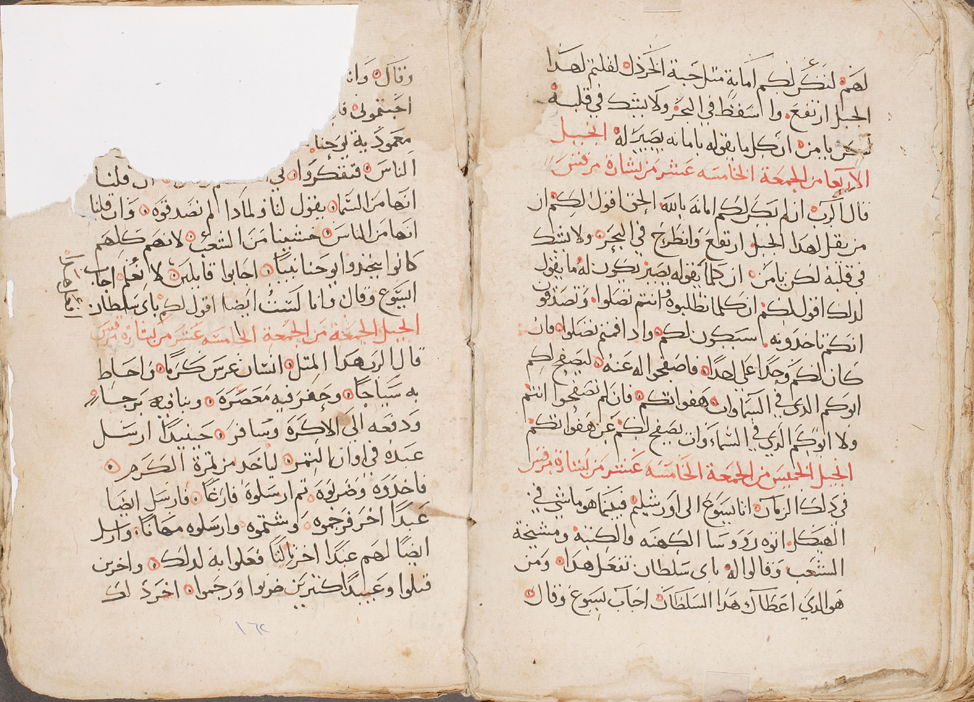 لهم لنكن لكم امانة متل حبة الخردل لقلتم لهدا
الجبل ارتفع واسقط في البحر ولا يشك في قلبه
يامن ان كل ما يقوله بامانه يصير له الجبل
الاربعا من الجمعة الخامسه عشر من بشارة مرقس
قال الرب ان لم تكن لكم امانه بالله الحق اقول لكم ان
من يقل لهدا الجبل ارتفع وانطرح في البحر ولا يشك
في قلبه لكن يامن ان كلما يقوله يصير يكون له ما يقول
لدلك اقول لكم ان كلما تطلبوه ادا انتم تصلوا وتصدقون
انكم تاخدونه سيكون لكم وادا قمتم تصلوا فان
كان لكم وجدا على احدا فاصفحوا له عنه ليصفح لكم
ابوكم الدي في السماوات هفواتكم فان لم تصفحوا انتم
ولا ابوكم الدي في السماوات يصفح لكم عن هفواتكم
الخميس من الجمعة الخامسه عشر من بشارة مرقس
في دلك الزمان اتا يسوع الى اورشليم فبينما هو ماشي في
الهيكل اتوه رووسا الكهنه والكتبه ومشيخة
الشعب وقالوا له باي سلطان تفعل هدا ومن
هو الدي اعطاك هدا السلطان اجاب يسوع وقال
وقال وانا
اجيبوني
معمودية يوحنا
الناس فتفكروا في ان قلنا
انها من السما يقول لنا ولمادا لم تصدقوه وان قلنا
انها من الناس خشينا من الشعب لانهم كلهم
كانوا يتخدوا يوحنا نبيا اجابوا قايلين لا نعلم اجاب
اليسوع وقال وانا لست ايضا اقول لكم باي سلطان
افعل هدا
الجمعة من الجمعة الخامسه عشر من بشارة مرقس
قال الرب هدا المتل انسان غرس كرما واحاط
به سياجا وحفر فيه معصرة وبنا فيه برجا
ودفعه الى الاكرة وسافر حينيدا ارسل
عبده في اوان التمر لياخد من تمرة الكرم
فاخدوه وضربوه تم ارسلوه فارغا فارسل ايضا
عبدا اخر فرجموه وشتموه وارسلوه مهانا وارسل
ايضا لهم عبدا اخر فعلوا به لدلك واخرين
قتلوا وعبيدا كتيرين ضربوا ورجموا اخر دلك
١٦٤